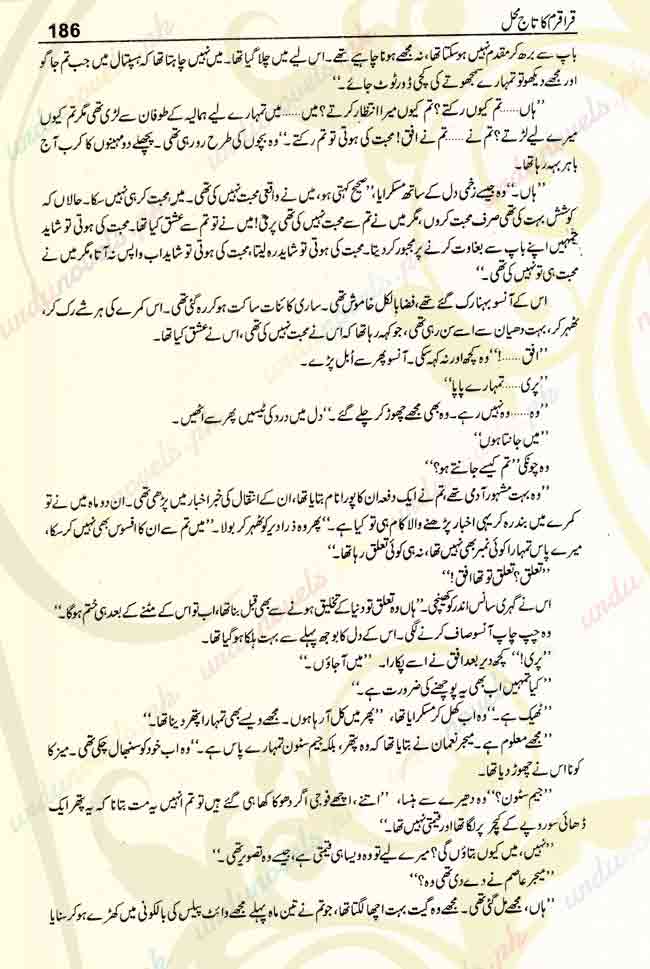 قراقرم کا تاج محل
186
باپ سے بڑھ کر مقدم نہیں ہو سکتا تھا، نہ مجھے ہونا چاہیے تھے۔ اس لیے میں چلا گیا تھا۔ میں نہیں چاہتا تھا کہ ہسپتال میں جب تم جاگو
اور مجھے دیکھو تو تمہارے سمجھوتے کی کچی ڈور ٹوٹ جائے۔‘‘
’’ہاں......تم کیوں رکتے؟ تم کیوں میرا انتظار کرتے؟ میں......میں تمہارے لیے ہمالیہ کے طوفان سے لڑی تھی مگر تم کیوں
میرے لیے لڑتے؟ تم نے......تم نے افق! محبت کی ہوتی تو تم رکتے۔‘‘ وہ بچوں کی طرح رو رہی تھی۔ پچھلے دو مہینوں کا کرب آج
باہر بہہ رہا تھا۔
’’ہاں۔‘‘ وہ جیسے زخمی دل کے ساتھ مسکرایا، ’’صحیح کہتی ہو، میں نے واقعی محبت نہیں کی تھی۔ میں محبت کر ہی نہیں سکا۔ حالاں کہ
کوشش بہت کی تھی صرف محبت کروں، مگر میں نے تم سے محبت نہیں کی تھی پری! میں نے تو تم سے عشق کیا تھا۔ محبت کی ہوتی تو شاید
تمہیں اپنے باپ سے بغاوت کرنے پر مجبور کر دیتا۔ محبت کی ہوتی تو شاید رہ لیتا، محبت کی ہوتی تو شاید اب واپس نہ آتا، مگر میں نے
محبت ہی تو نہیں کی تھی۔‘‘
اس کے آنسو بہنا رک گئے تھے، فضا بالکل خاموش تھی۔ ساری کائنات ساکت ہو کر رہ گئی تھی۔ اس کمرے کی ہر شے رک کر،
ٹھہر کر، بہت دھیان سے اسے سن رہی تھی، جو کہہ رہا تھا کہ اس نے محبت نہیں کی تھی، اس نے عشق کیا تھا۔
’’افق......!‘‘ وہ کچھ اور نہ کہہ سکی۔ آنسو پھر سے اُبل پڑے۔
’’پری......تمہارے پاپا‘‘
’’وہ......وہ نہیں رہے۔ وہ بھی مجھے چھوڑ کر چلے گئے۔‘‘ دل میں درد کی ٹیسیں پھر سے اٹھیں۔
’’میں جانتا ہوں‘‘
وہ چونکی ’’تم کیسے جانتے ہو؟‘‘
’’وہ بہت مشہور آدمی تھے، تم نے ایک دفعہ ان کا پورا نام بتایا تھا، ان کے انتقال کی خبر اخبار میں پڑھی تھی۔ ان دو ماہ میں نے تو
کمرے میں بند رہ کر یہی اخبار پڑھنے والا کام ہی تو کیا ہے۔‘‘ پھر وہ ذرا دیر کو ٹھہر کر بولا۔ ’’میں تم سے ان کا افسوس بھی نہیں کر سکا،
میرے پاس تمہارا کوئی نمبر بھی نہیں تھا، نہ ہی کوئی تعلق رہا تھا۔‘‘
’’تعلق؟ تعلق تو تھا افق!‘‘
اس نے گہری سانس اندر کو کھینچی۔ ’’ہاں وہ تعلق تو دنیا کے تخلیق ہونے سے بھی قبل بنا تھا، اب تو اس کے مٹنے کے بعد ہی ختم ہوگا۔‘‘
وہ چپ چاپ آنسو صاف کرنے لگی۔ اس کے دل کا بوجھ پہلے سے بہت ہلکا ہو گیا تھا۔
’’پری!‘‘ کچھ دیر بعد افق نے اسے پکارا۔ ’’میں آ جاؤں۔‘‘
’’کیا تمہیں اب بھی یہ پوچھنے کی ضرورت ہے۔‘‘
’’ٹھیک ہے۔‘‘ وہ اب کھل کر مسکرایا تھا، ’’پھر میں کل آ رہا ہوں۔ مجھے ویسے بھی تمہارا پتھر دینا تھا۔‘‘
’’مجھے معلوم ہے۔ میجر نعمان نے بتایا تھا کہ وہ پتھر، بلکہ جیم سٹون تمہارے پاس ہے۔‘‘ وہ اب خود کو سنبھال چکی تھی۔ میز کا
کونا اس نے چھوڑ دیا تھا۔
’’جیم سٹون؟‘‘ وہ دھیرے سے ہنسا، ’’اتنے، اچھے فوجی اگر دھوکا کھا ہی گئے ہیں تو تم انہیں یہ مت بتانا کہ یہ پتھر ایک
ڈھائی سو روپے کے کیچر پر لگا تھا اور قیمتی نہیں تھا۔‘‘
’’نہیں، میں کیوں بتاؤں گی؟ میرے لیے تو وہ ویسا ہی قیمتی ہے، جیسے وہ تصویر تھی۔‘‘
’’میجر عاصم نے دے دی تھی وہ؟‘‘
’’ہاں، مجھے مل گئی تھی۔ مجھے وہ گیت بہت اچھا لگتا تھا، جو تم نے تین ماہ پہلے مجھے وائٹ پیلس کی بالکونی میں کھڑے ہو کر سنایا